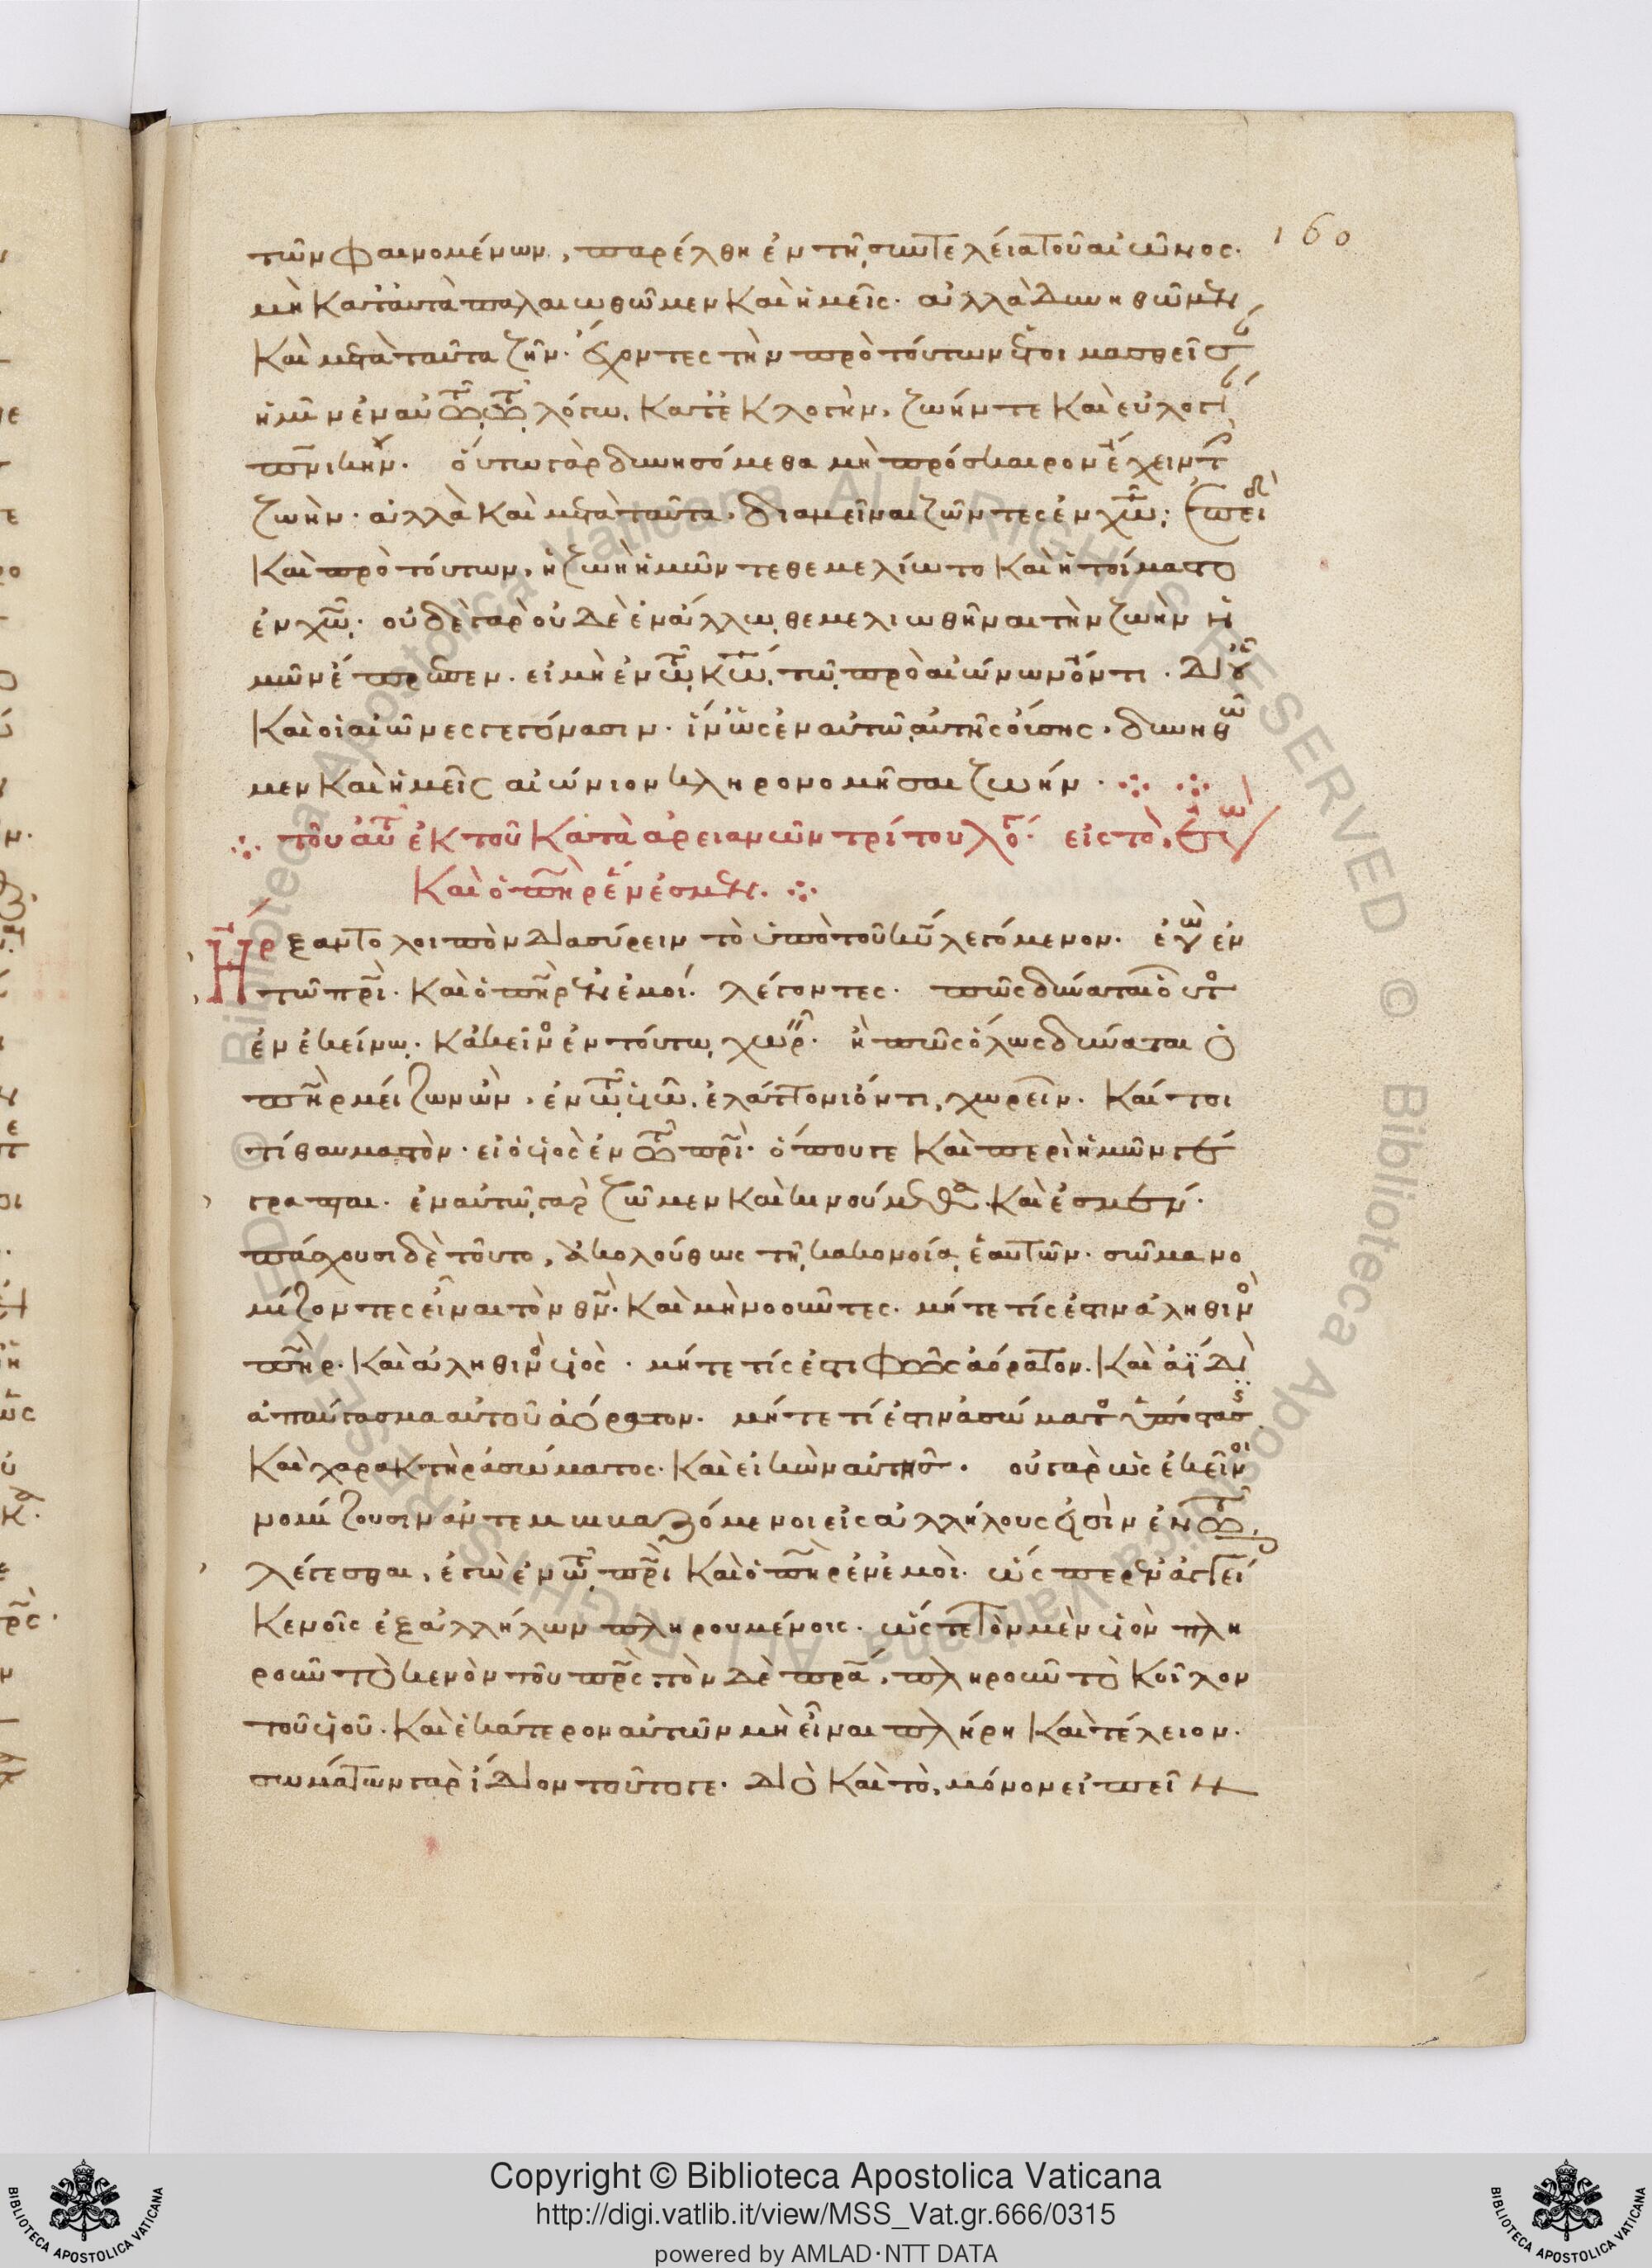 160
τῶν φαινομένων, παρέλθη ἐν τῇ συντελεία τοῦ αἰῶνος.
μὴ κατὰ ταυτα παλαιωθῶμεν καὶ ἡμεῖς. ἀλλὰ δυνηθῶμεν
καὶ μετὰ ταῦτα ζῆν. ἔχοντες τὴν πρὸ τούτων ἑτοιμασθεῖσ
ἡμῖν ἐν αὐτῷ τῷ λόγω, κατ' ἐκλογὴν, ζωήν τε καὶ εὐλογί
πνικήν. οὕτω γὰρ δυνησόμεθα μὴ πρόσκαιρον ἔχειν τ
ζωὴν. ἀλλὰ καὶ μετὰ ταῦτα, διαμεῖναι ζῶντες ἐν χῶ. ἐπειδὴ
καὶ πρὸ τούτων, ἡ ζωὴ ἡμῶν τεθεμελίωτο καὶ ἡτοίμαστο
ἐν χῶ. οὐδὲ γὰρ οὐδὲ ἐν ἄλλω θεμελιωθῆναι τὴν ζωὴν ἡ
μῶν ἔπρεπεν. εἰ μὴ ἐν τῷ κῶ, τῷ πρὸ αἰώνων ὄντι. δι' οὗ
καὶ οἱ αἰῶνες γεγόνασιν. ἵν' ὡς ἐν αὐτῷ αὐτῆς οὔσης, δυνηθῶ
μεν καὶ ἡμεῖς αἰώνιον κληρονομῆσαι ζωήν.
τοῦ αὐτ ἐκ τοῦ κατὰ ἀρειανῶν τρίτου λόγ. εἰς τὸ, ἐγὼ
καὶ ὁ πηρ ἕν ἐσμεν.
Ἤρξαντο λοιπὸν διασύρειν τὸ ὑπὸ τοῦ κυ λεγόμενον. ἐγὼ ἐν
τῷ πρι. καὶ ὁ πηρ ἐν ἐμοί. λέγοντες. πῶς δύναται οὗτ
ἐν ἐκείνω. κἀκεῖν ἐν τούτω χωρ. ἢ πῶς ὅλως δύναται ὁ
πηρ μείζων ὢν, ἐν τῷ υἱῷ ἐλάττονι ὄντι, χωρεῖν. καίτοι
τί θαυμαστὸν. εἰ ὁ υἱὸς ἐν τῷ πρι. ὅπουγε καὶ περὶ ἡμῶν γέ
γραπται. ἐν αὐτῷ γὰρ ζῶμεν καὶ κινούμεθα καὶ ἐσμέν.
πάσχουσι δὲ τοῦτο, ἀκολούθως τῇ κακονοία ἑαυτῶν. σῶμα νο
μίζοντες εἶναι τὸν θν. καὶ μὴ νοοῦντες. μήτε τίς ἐστιν ἀληθινὸ
πηρ. καὶ ἀληθινὸ υἱὸς. μήτε τίς ἐστι φῶς ἀόρατον. καὶ ἀΐδι
ἀπαύγασμα αὐτοῦ ἀόρατον. μήτε τί ἐστιν ἀσώματο ὑπόστασ
καὶ χαρακτὴρ ἀσώματος. καὶ εἰκὼν αὐτῆς. οὐ γὰρ ὡς ἐκεῖνοι
νομίζουσιν ἀντεμβιβαζόμενοι εἰς ἀλλήλους ἐσὶν ἐν τῷ
λέγεσθαι, ἐγὼ ἐν τῷ πρι καὶ ὁ πηρ ἐν ἐμοὶ. ὥσπερ ἐν ἀγγεί
κενοῖς ἐξ ἀλλήλων πληρουμένοις. ὥστε τὸν μὲν υἱὸν πλη
ροῦν τὸ κενὸν τοῦ πρς, τὸν δὲ πρα, πληροῦν τὸ κοῖλον
τοῦ υἱοῦ. καὶ ἑκάτερον αὐτῶν μὴ εἶναι πλήρη καὶ τέλειον.
σωμάτων γὰρ ἴδιον τοῦτο γε. διὸ καὶ τὸ, μόνον εἰπεῖν
Copyright © Biblioteca Apostolica Vaticana
http://digi.vatlib.it/view/MSS_Vat.gr.666/0315
powered by AMLAD·NTT DATA